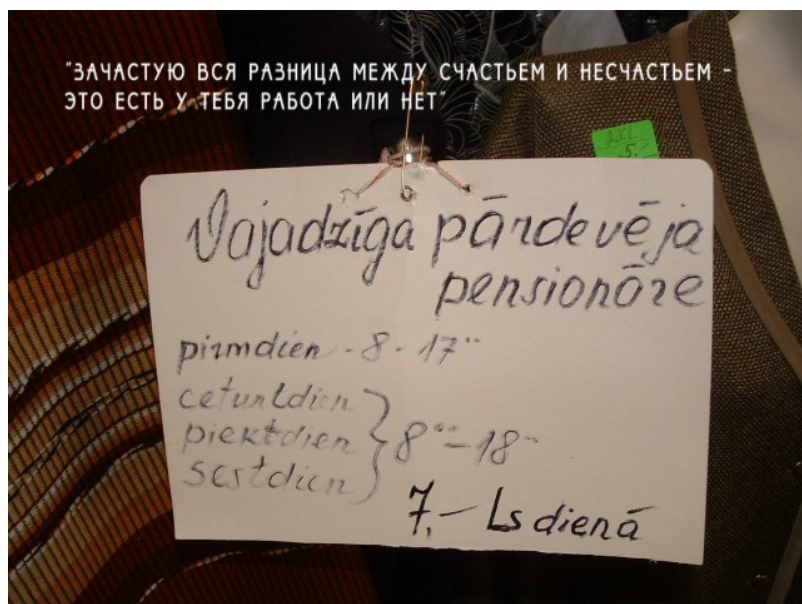 "ЗАЧАСТУЮ ВСЯ РАЗНИЦА МЕЖДУ СЧАСТЬЕМ И НЕСЧАСТЬЕМ -
ЭТО ЕСТЬ У ТЕБЯ РАБОТА ИЛИ НЕТ"
5,-
Vajadzīga pārdevēja
pensionāre
pirmdien - 8 - 17
ceturtdien
piektdien
sestdien
8°°-18
7,- Ls dienā